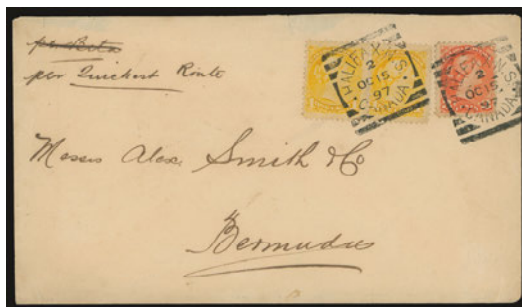 per Beta
per Quickest Route
HALIFAX N.S.
2
OC 15
97
CANADA
HALIFAX N.S.
2
OC 15
97
CANADA
Messrs Alex. Smith & Co
Bermuda